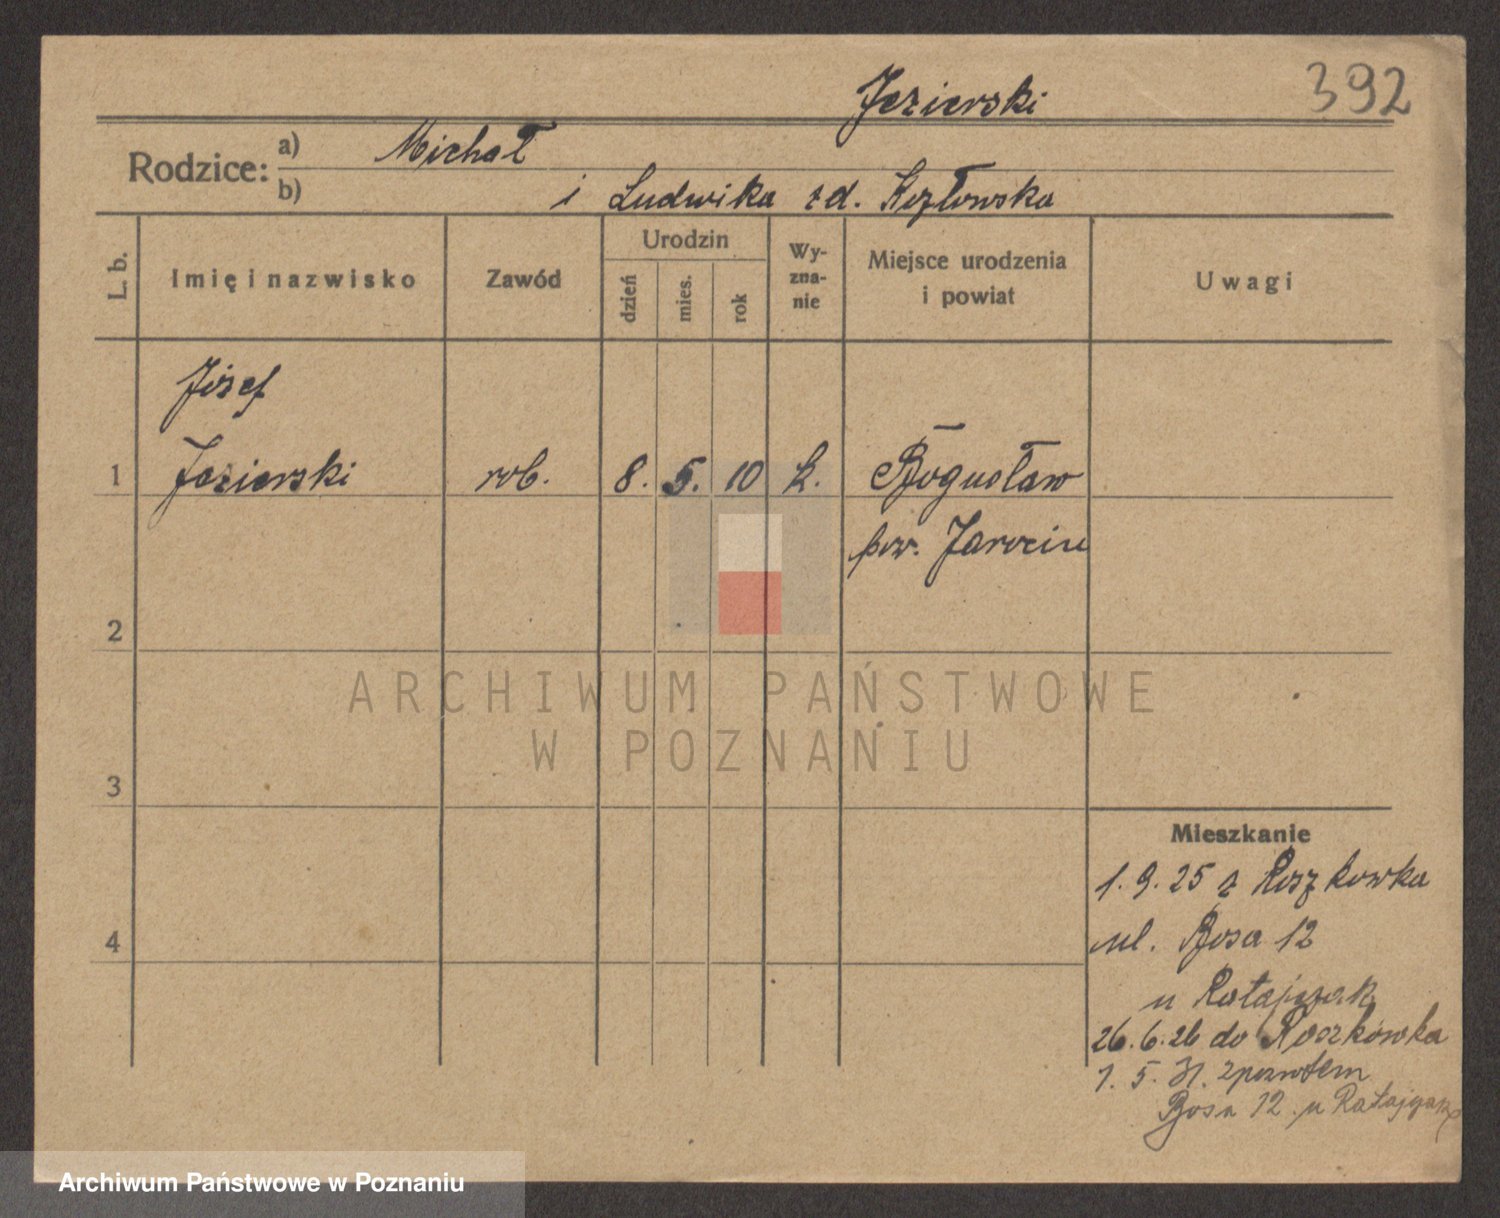 392
Jezierski
Rodzice: a) Michał
b) i Ludwika zd. Kozłowska
L. b.
Imię i nazwisko
Zawód
Urodzin
dzień
mies.
rok
Wy-
zna-
nie
Miejsce urodzenia
i powiat
Uwagi
Józef
1 Jezierski rob. 8. 5. 10 k. Bogusław
pow. Jarocin
2
ARCHIWUM PAŃSTWOWE
W POZNANIU
3
Mieszkanie
1. 9. 25 z Roszkowka
ul. Bosa 12
4
u Ratajczak
26. 6. 26 do Roszkówka
1. 5. 31. zpowrotem
Bosa 12 u Ratajczak
Archiwum Państwowe w Poznaniu